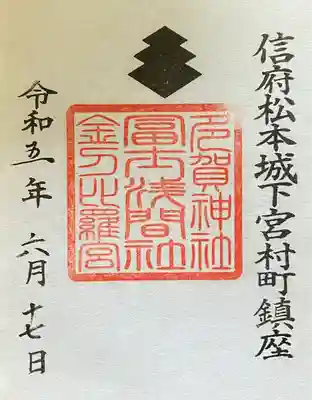 信府松本城下宮村町鎮座
多賀神社
冨士浅間社
金刀比羅宮
令和五年 六月 十七日